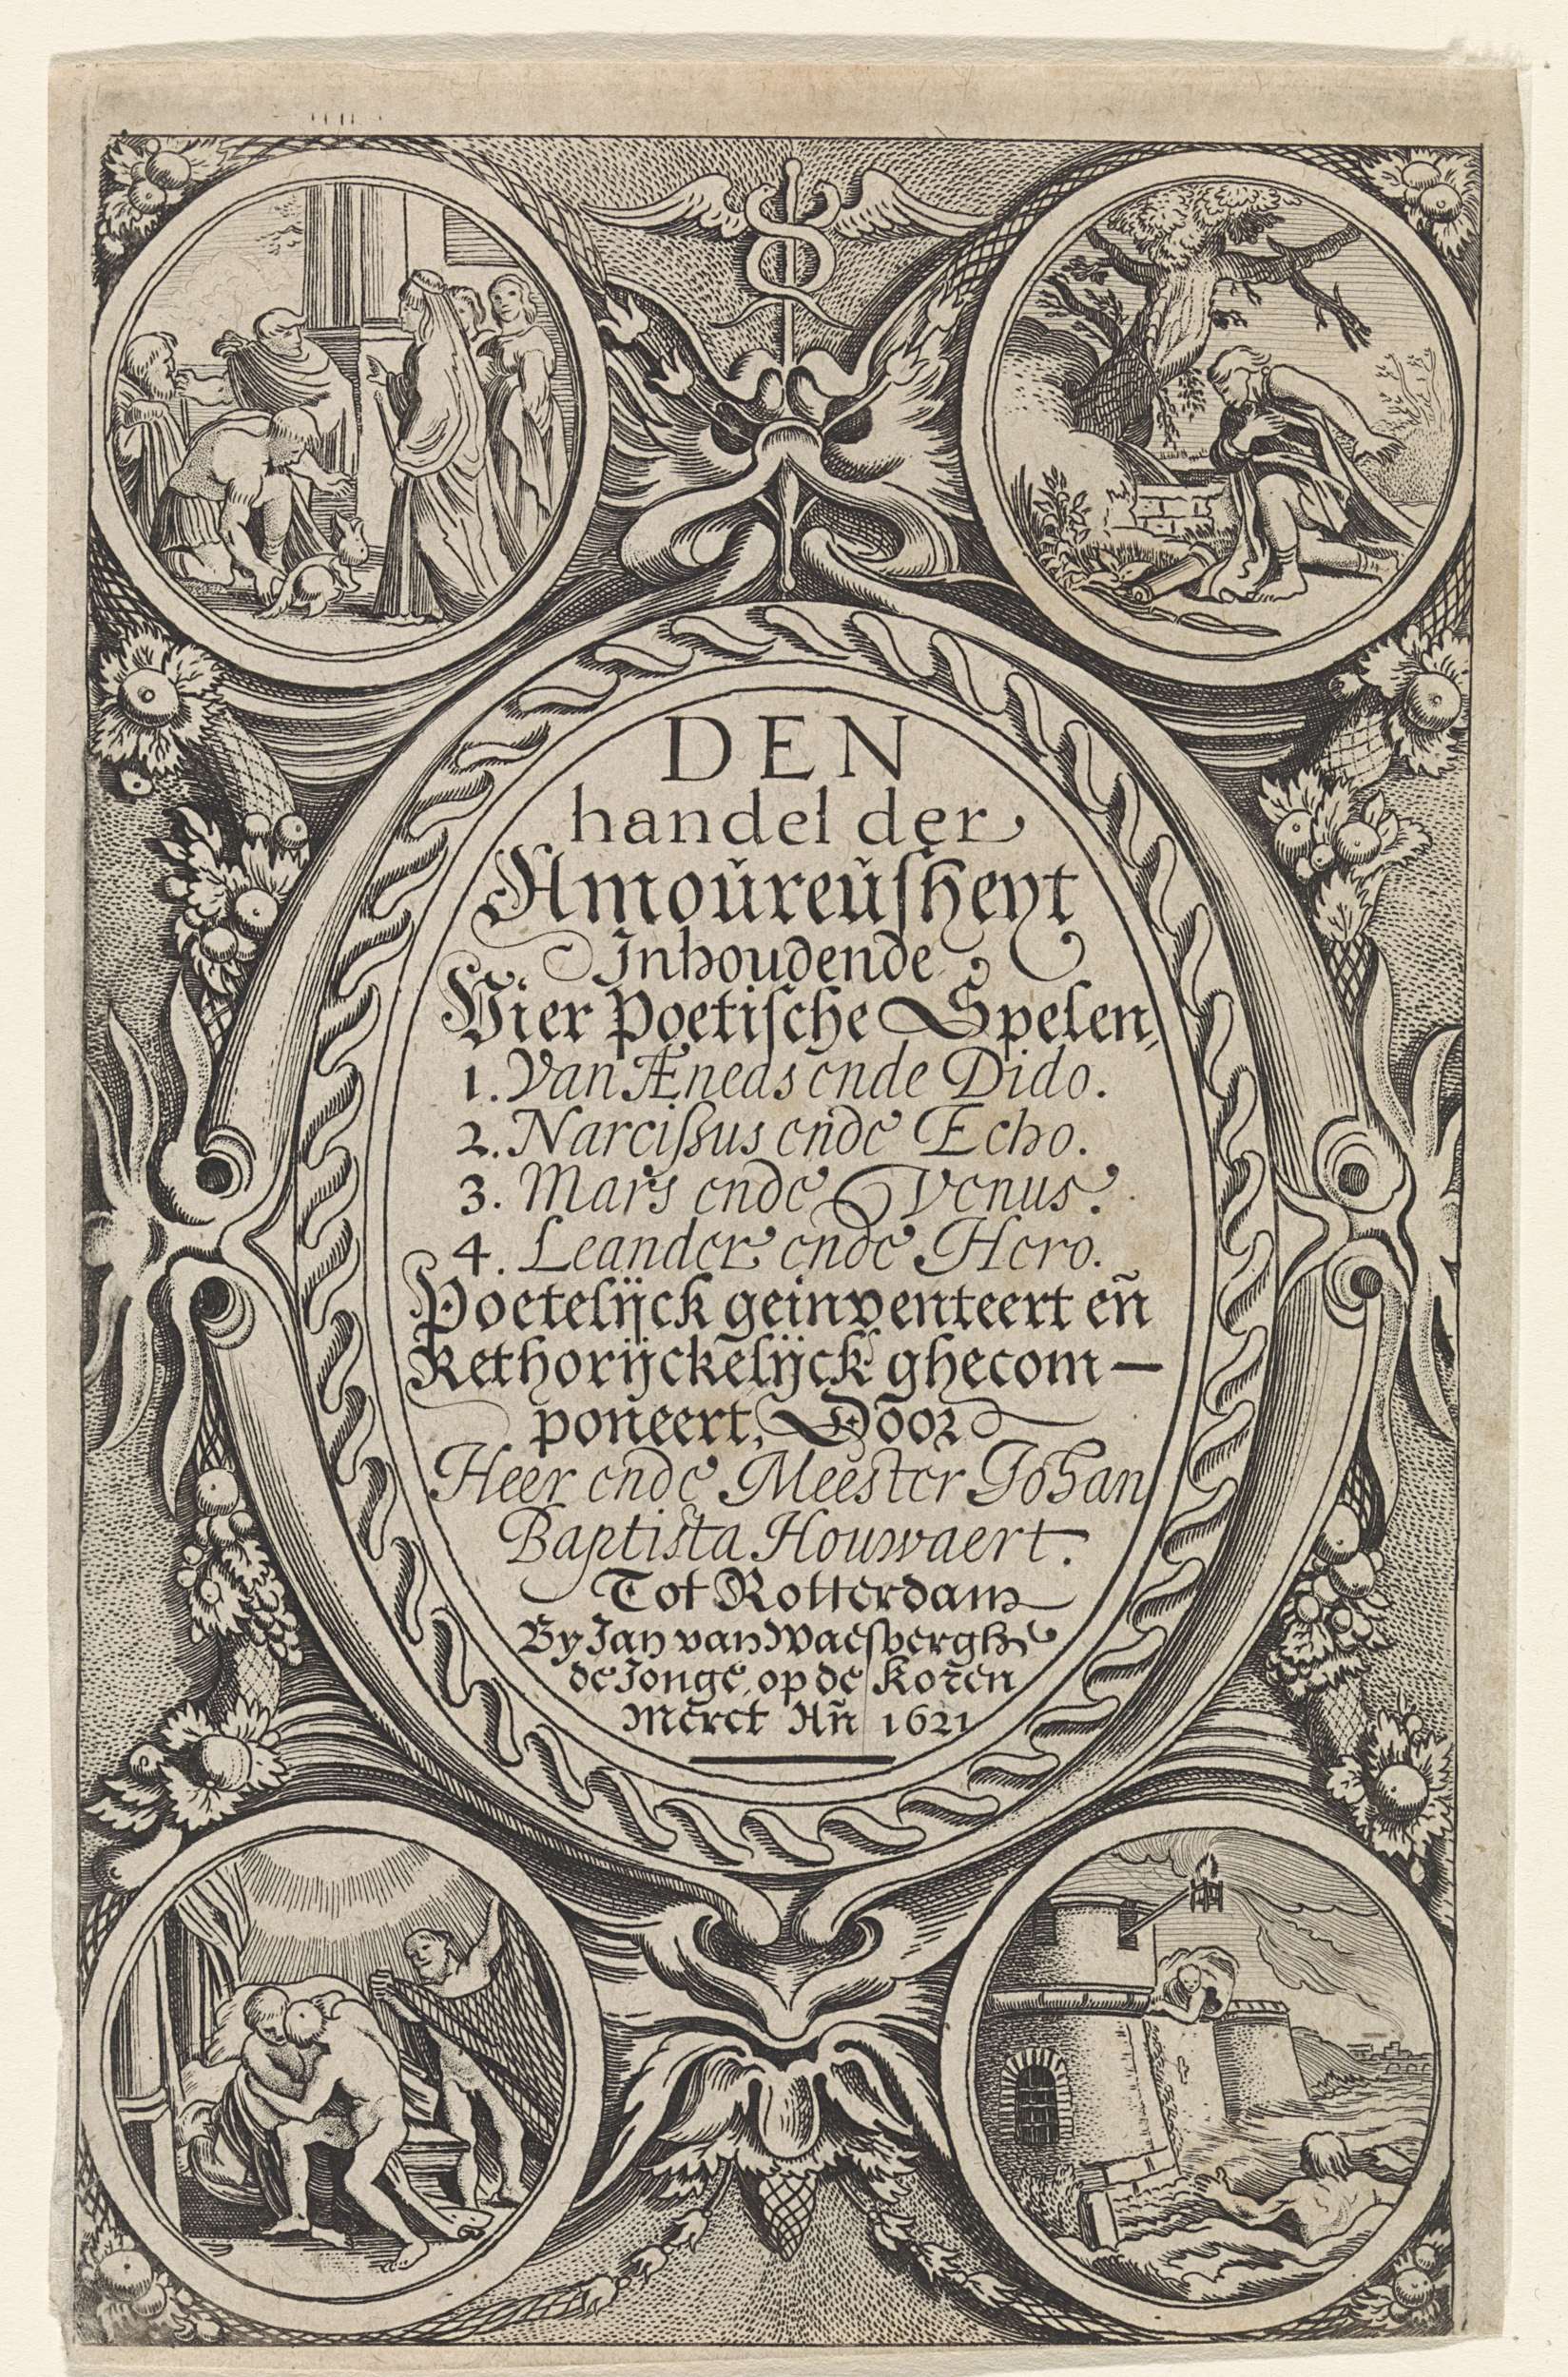 DEN
handel der
Amoŭreŭſheyt
Inhoudende
Vier Poetiſche Spelen,
1. Van Æneas ende Dido.
2. Narciſsus ende Echo.
3. Mars ende Venus.
4. Leander ende Hero.
Poetelijck geinventeert eñ
Rethorijckelijck ghecom-
poneert, Door
Heer ende Meester Johan
Baptista Houwaert.
Tot Rotterdam
By Jan van Waeſbergh
de Jonge, op de Koren
Merct Añ 1621